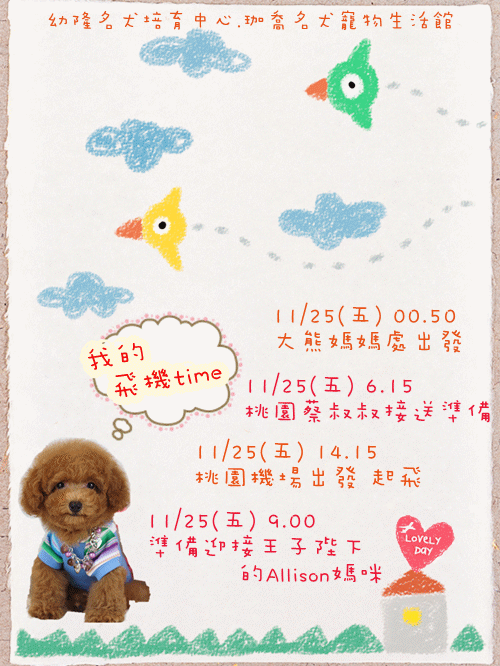 幼隆名犬培育中心.珈喬名犬寵物生活館
11/25(五) 00.50
大熊媽媽處出發
我的
飛機time
11/25(五) 6.15
桃園蔡叔叔接送準備
11/25(五) 14.15
桃園機場出發 起飛
11/25(五) 9.00
準備迎接王子陛下
的Allison媽咪
LOVELY
DAY